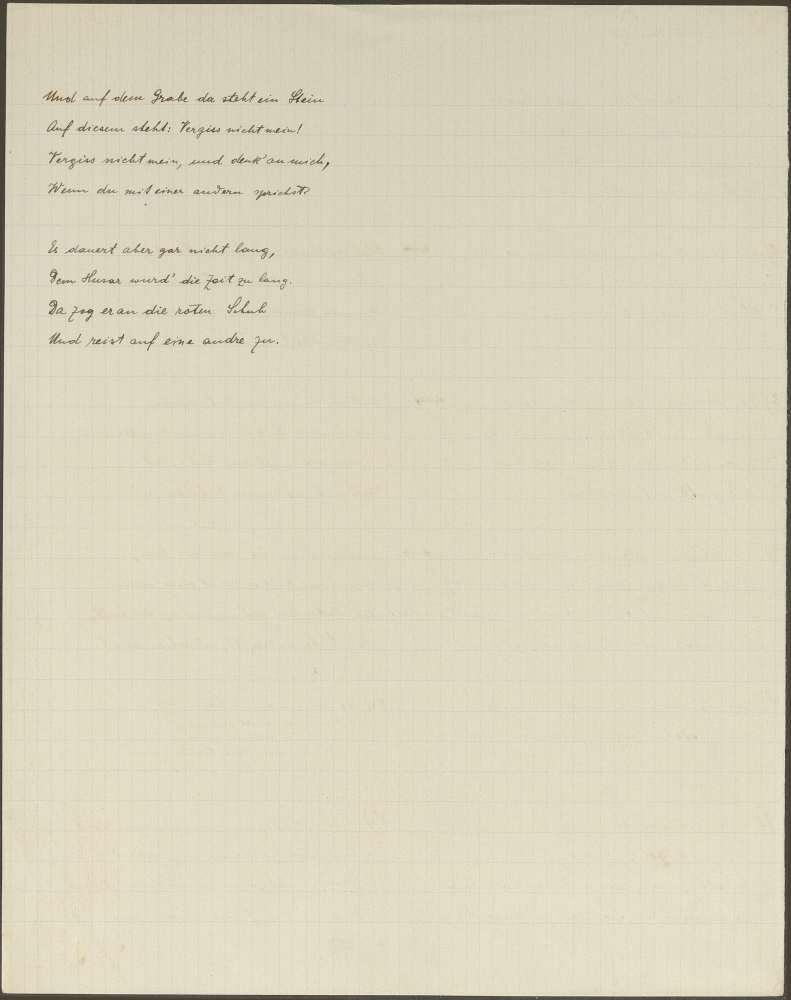 Und auf dem Grabe da steht ein Stein
Auf diesem steht: Vergiss nicht mein!
Vergiss nicht mein, und denk' an mich,
Wenn du mit einer andern sprichst?

Es dauert aber gar nicht lang,
Dem Husar wurd' die Zeit zu lang.
Da zog er an die roten Schuh
Und reist auf eine andre zu.